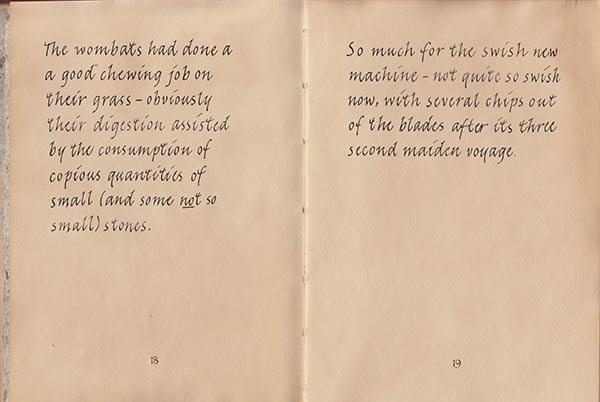 The wombats had done a
a good chewing job on
their grass – obviously
their digestion assisted
by the consumption of
copious quantities of
small (and some not so
small) stones.
18
So much for the swish new
machine – not quite so swish
now, with several chips out
of the blades after its three
second maiden voyage.
19